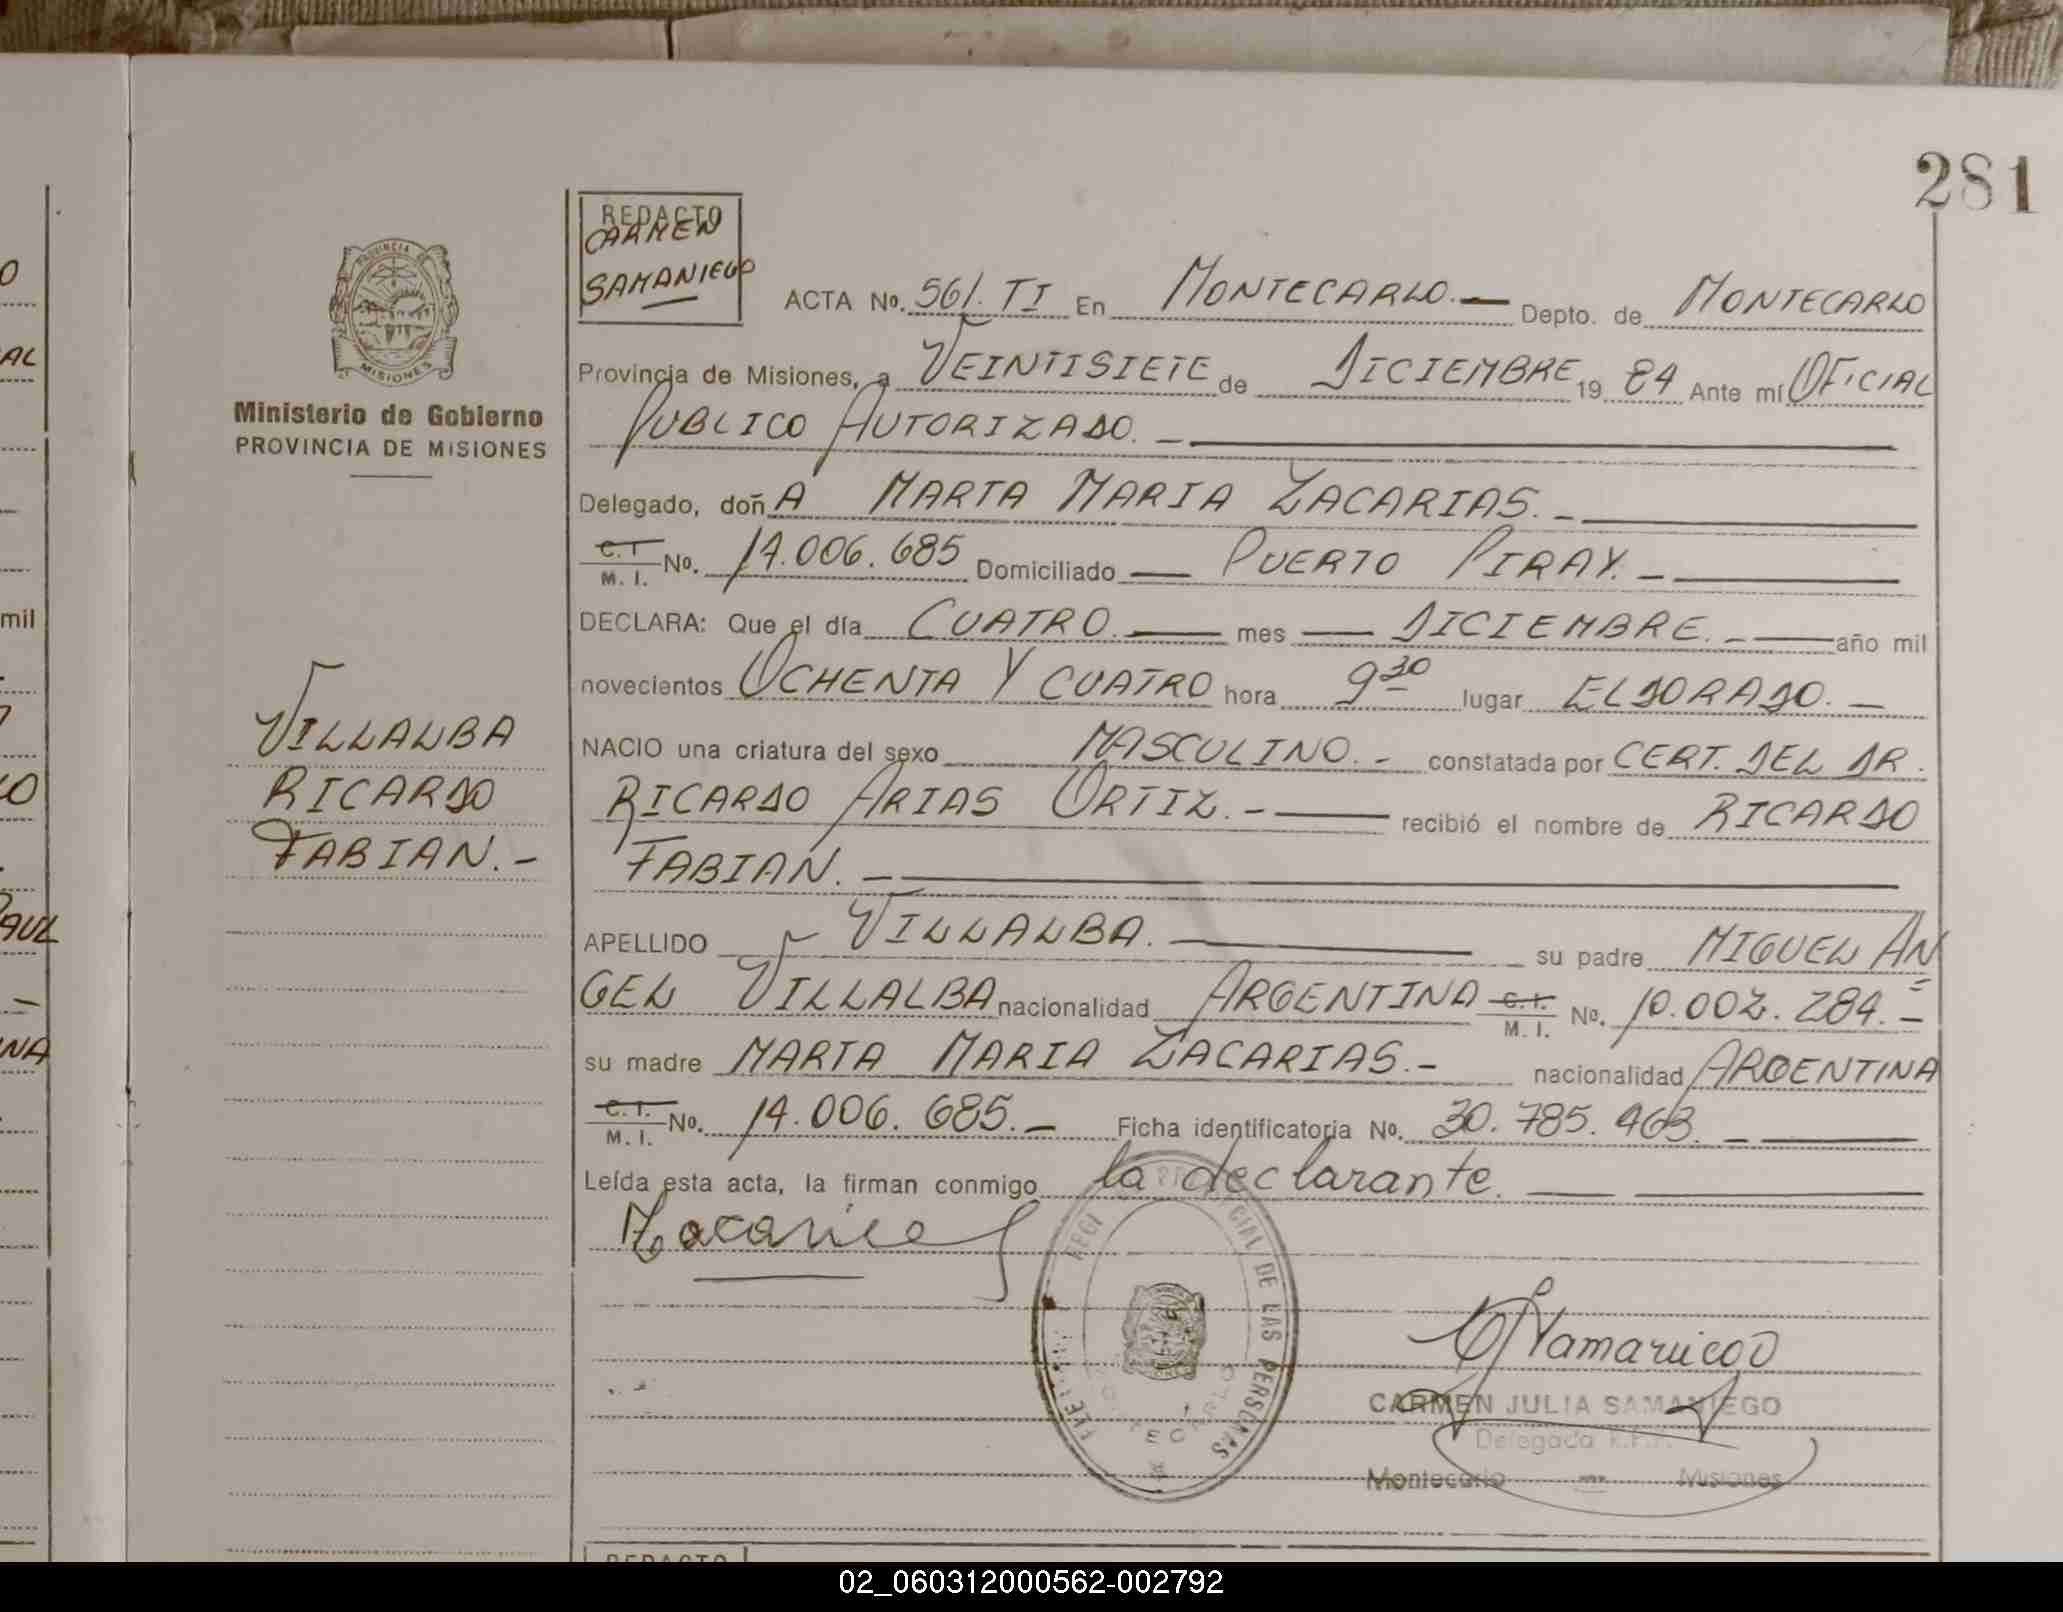 281
REDACTO
CARMEN
SAMANIEGO
ACTA No. 561. TI En MONTECARLO.— Depto. de MONTECARLO
Provincia de Misiones, a VEINTISIETE de DICIEMBRE 19 84 Ante mí OFICIAL
PUBLICO AUTORIZADO. —
Delegado, doñA MARTA MARIA ZACARIAS. —
C.I.
M. I. No. 14.006.685 Domiciliado — PUERTO PIRAY. —
DECLARA: Que el día CUATRO. — mes — DICIEMBRE. — año mil
novecientos OCHENTA Y CUATRO hora 9 30 lugar ELDORADO. —
NACIO una criatura del sexo MASCULINO. - constatada por CERT. DEL DR.
RICARDO ARIAS ORTIZ. - — recibió el nombre de RICARDO
FABIAN. —
APELLIDO VILLALBA. — su padre MIGUEL AN
GEL VILLALBA nacionalidad ARGENTINA C.I.
M. I. No. 10.002.284. —
su madre MARTA MARIA ZACARIAS. - nacionalidad ARGENTINA
C.I.
M. I. No. 14.006.685. — Ficha identificatoria No. 30.785.463. —
Leída esta acta, la firman conmigo la declarante. —
Zacarias
CARMEN JULIA SAMANIEGO
Delegada R.P.P.
Montecarlo — Misiones
PROVINCIA DE
MISIONES
Ministerio de Gobierno
PROVINCIA DE MISIONES
VILLALBA
RICARDO
FABIAN. -
CIAL DE LAS PERSONAS
REDACTO
O
AL
mil
LO
PAUL
NA
02_060312000562-002792